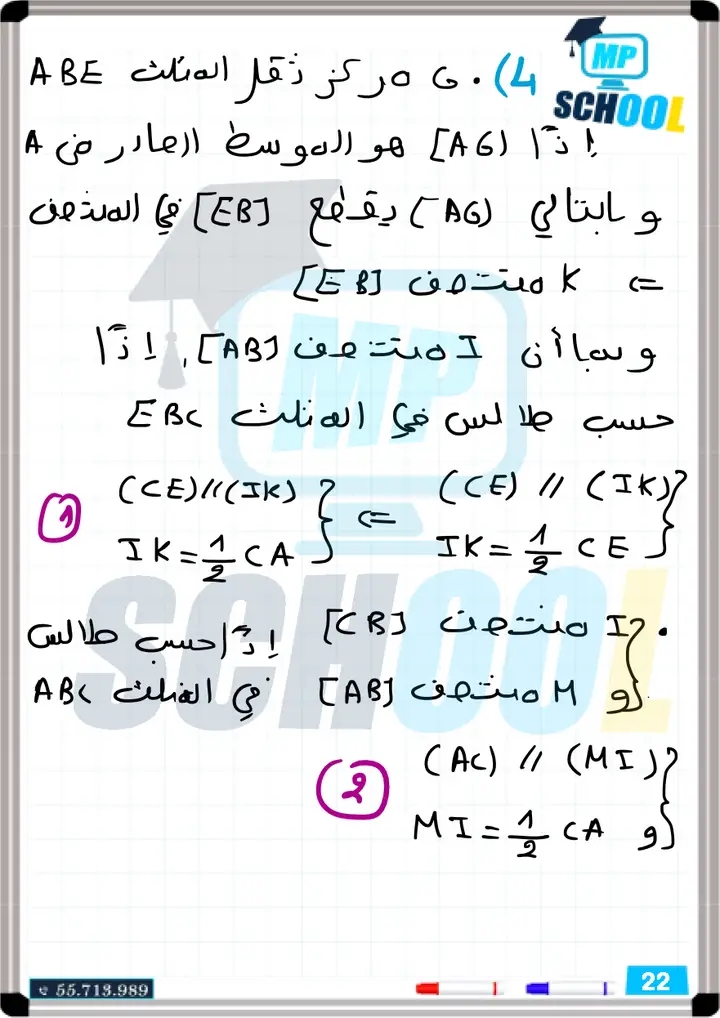 MP
SCHOOL
4) • G مركز ثقل المثلث ABE
إذًا (AG] هو الموسط الصادر من A
و بالتالي (AG) يقطع [EB] في المنتصف
⇐ K منتصف [EB]
و بما أن I منتصف [AB], إذًا
حسب طالس في المثلث EBC
(CE) // (IK) ⇐ (CE)//(IK)
IK = 1/2 CE IK = 1/2 CA ①
• I منتصف [CB] إذًا حسب طالس
و M منتصف [AB] في المثلث ABC
(AC) // (MI)
و MI = 1/2 CA ②
55.713.989
22